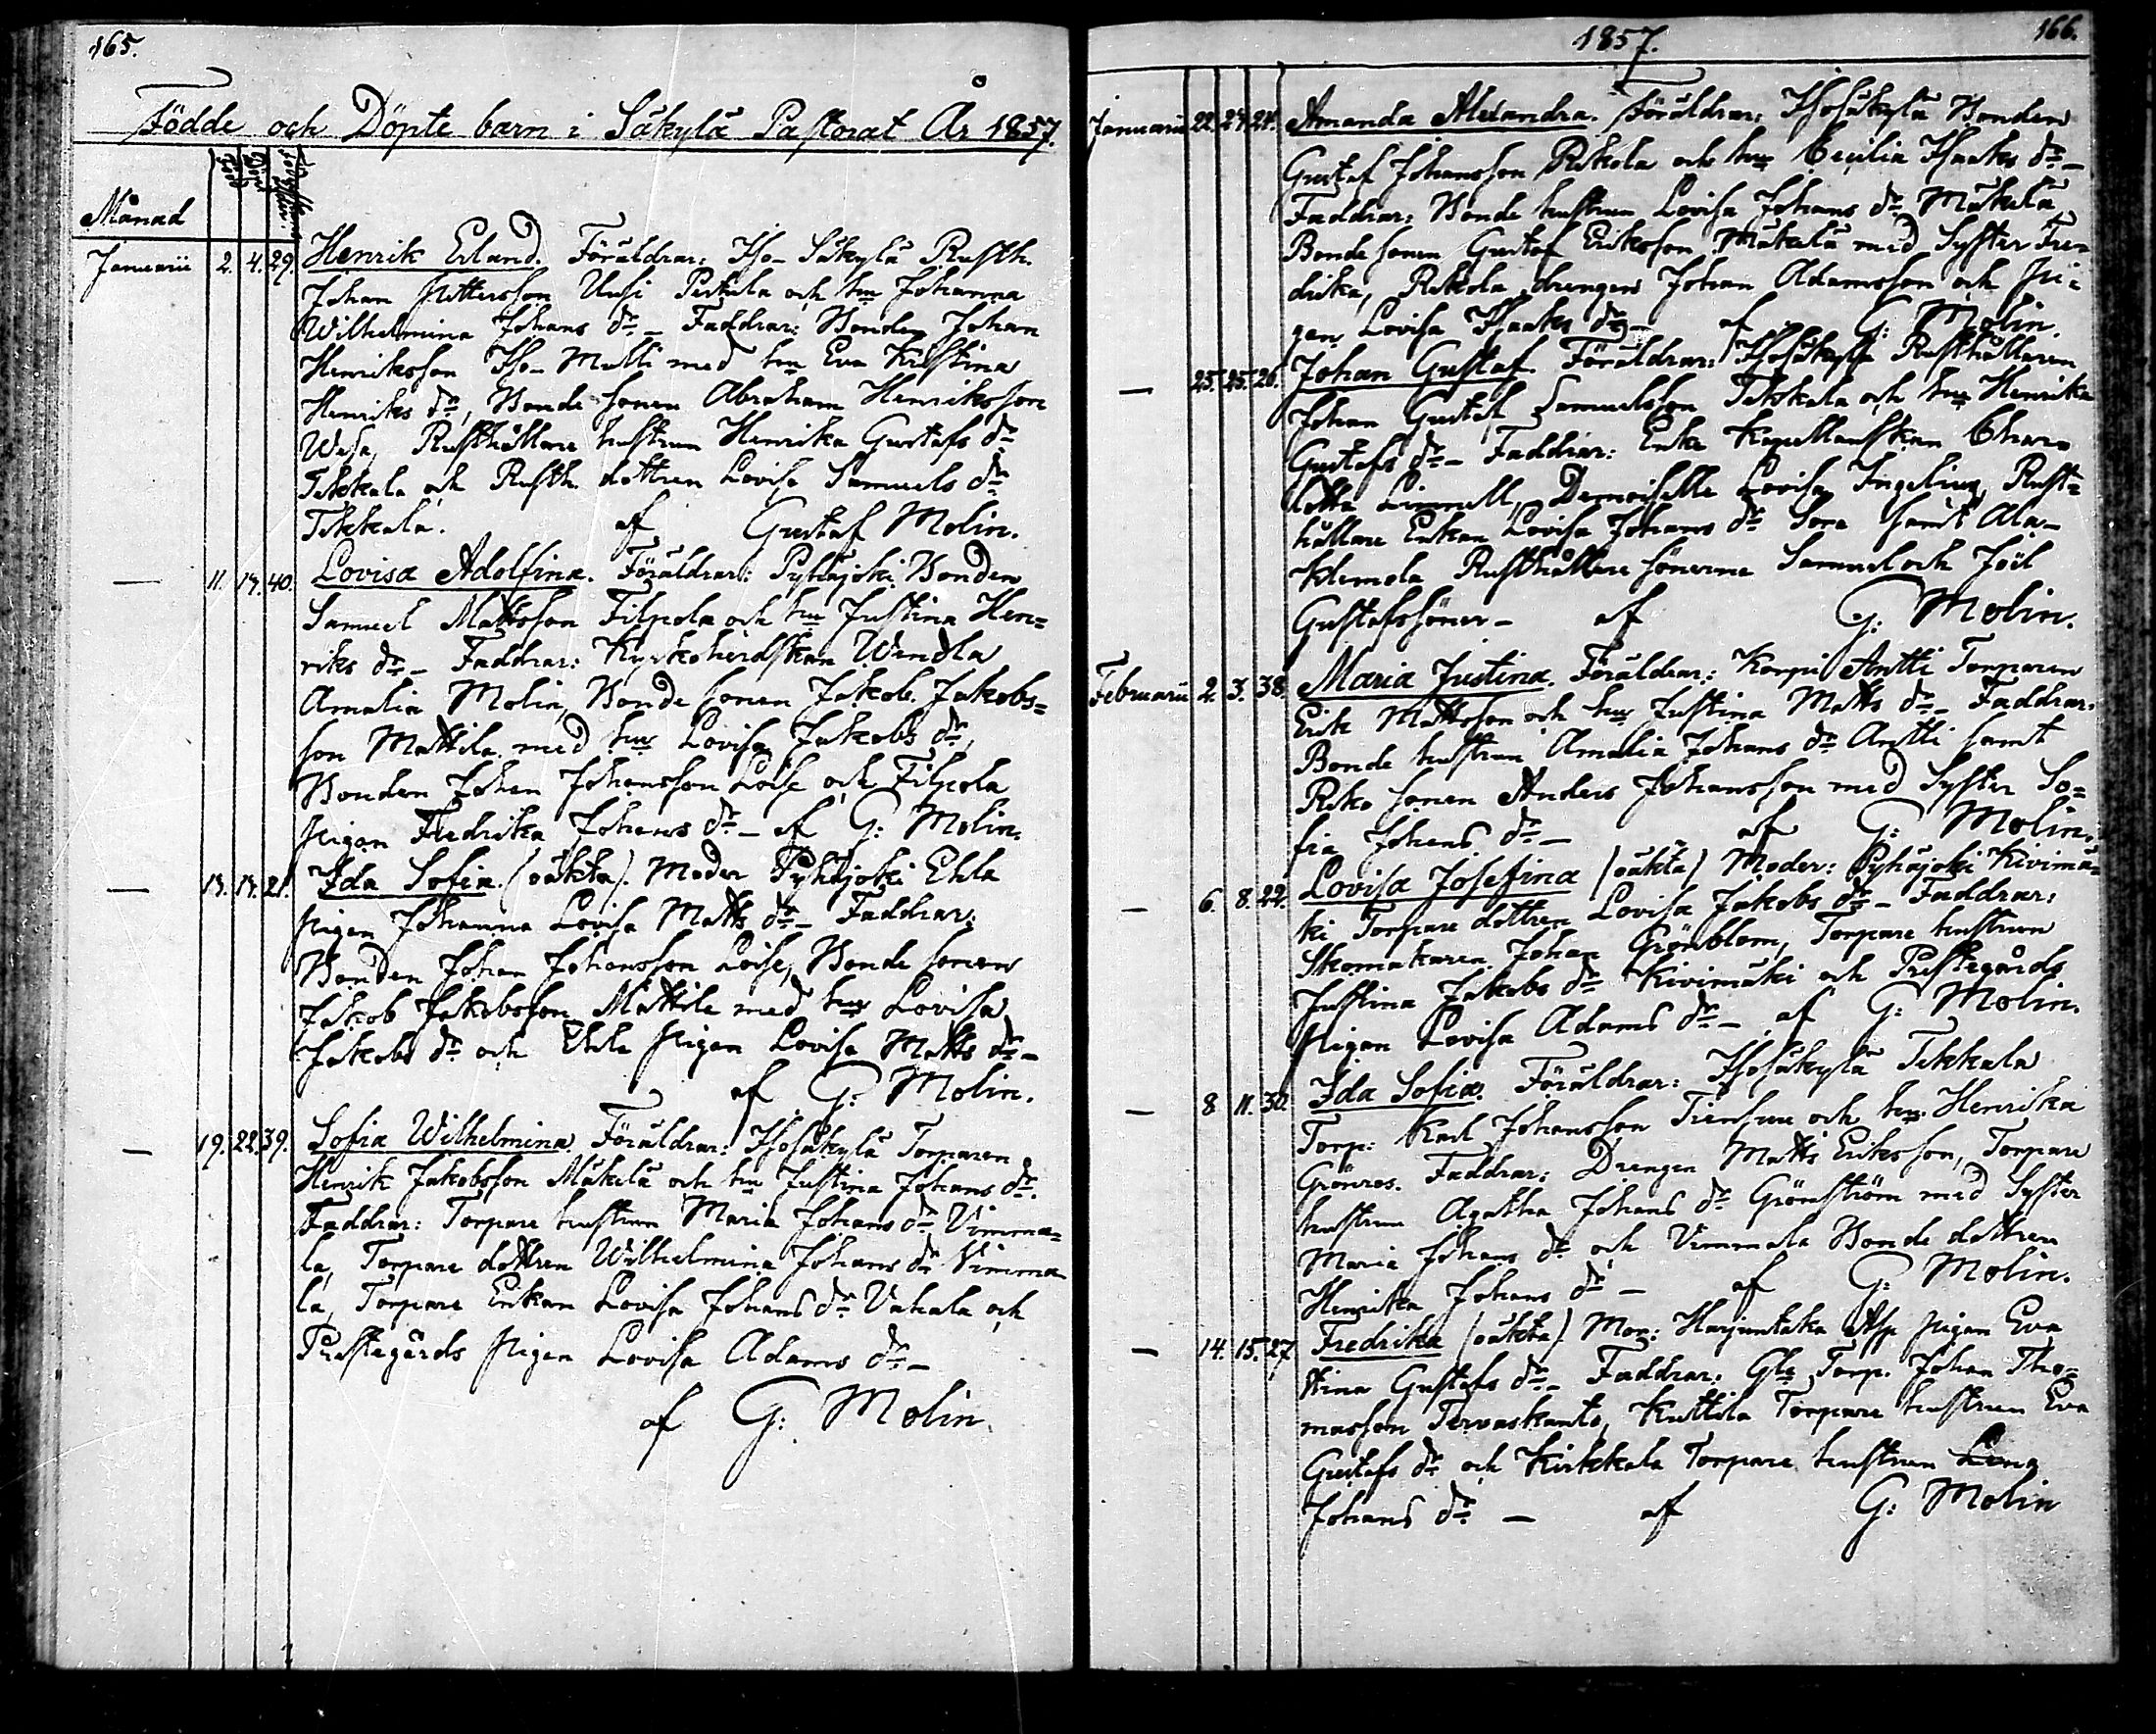 165.
Födde och Döpte barn i Säkylä Pastorat År 1857.
Månad
Född
Döpt
Januarii 2. 4. 29. Henrik Erland. Föräldrar: Iso-Säkylä Rusth.
Johan Pettersson Uusi Perkola och hu Johanna
Wilhelmina Johans dr_ Faddrar: Bonden Johan
Henriksson Iso-Multi med hu Eva Kristina
Henriks dr, Bonde sonen Abraham Henriksson
Wesa, Rusthållare hustrun Henrika Gustafs dr
Tikkala och Rusth. dottren Lovisa Samuels dr
Tikkala. af Gustaf Molin.
— 11. 14. 40. Lovisa Adolfina. Föräldrar: Pyhäjoki Bonden
Samuel Mattsson Filpola och hu Justina Hen=
riks dr_ Faddrar: Kyrkoherdskan Wendla
Amalia Molin, Bonde sonen Jakob Jakobs=
son Mattila med hu Lovisa Jakobs dr,
Bonden Johan Johansson Loise och Filpola
pigan Fredrika Johans dr_ af G: Molin.
— 13. 14. 21. Ida Sofia. (oäkta). Moder Pyhäjoki Ehla
pigan Johanna Lovisa Matts dr_ Faddrar:
Bonden Johan Johansson Loise, Bonde sonen
Jakob Jakobsson Mattila med hu Lovisa
Jakobs dr och Ehla pigan Lovisa Matts dr_
af G: Molin.
— 19. 22. 39. Sofia Wilhelmina. Föräldrar: Isosäkylä Torparen
Henrik Jakobsson Mäkelä och hu Justina Johans dr.
Faddrar: Torpare hustrun Maria Johans dr Vimma=
la, Torpare dottren Wilhelmina Johans dr Vimma
la, Torpare Enkan Lovisa Johans dr Vahala och
Prestegårds pigan Lovisa Adams dr_
af G: Molin.
1857. 166.
Januarii 22. 24. 24. Amanda Alexandra. Föräldrar: Isosäkylä Bonden
Gustaf Johansson Riskola och hu Cecilia Isaaks dr_
Faddrar: Bonde hustrun Lovisa Johans dr Mäkelä
Bonde sonen Gustaf Eriksson Mäkelä med Syster Fre=
drika, Riskola drengen Johan Adamsson och Pi=
gan Lovisa Isaaks dr_ af G: Molin.
— 25. 25. 26. Johan Gustaf. Föräldrar: Isosäkylä Rusthållaren
Johan Gustaf Samuelsson Tikkala och hu Henrika
Gustafs dr_ Faddrar: Enke Kapellanskan Char=
lotta Limnell, Demoiselle Lovisa Ingelius, Rust=
hållare Enkan Lovisa Johans dr Sora samt Ala-
Klemola Rusthållare sönerne Samuel och Joel
Gustafssöner_ af G: Molin.
Februarii 2. 3. 38. Maria Justina. Föräldrar: Korpi Antti Torparen
Erik Mattsson och hu Justina Matts dr_ Faddrar:
Bonde hustrun Amalia Johans dr Antti samt
Risko sonen Anders Johansson med Syster So=
fia Johans dr_ af G: Molin.
— 6. 8. 22. Lovisa Josefina (oäkta) Moder: Pyhäjoki Kivimä=
ki Torpare dottren Lovisa Jakobs dr_ Faddrar:
Skomakaren Johan Grönblom, Torpare hustrun
Justina Jakobs dr Kivimäki och Prestegårds
Pigan Lovisa Adams dr_ af G: Molin.
— 8. 11. 30. Ida Sofia. Föräldrar: Isosäkylä Tikkala
Torp: Karl Johansson och hu Henrika
Grönros. Faddrar: Drengen Matts Eriksson, Torpare
hustrun Agatha Johans dr Grönström med Syster
Maria Johans dr och Vimmala Bonde dottren
Henrika Johans dr_ af G: Molin.
— 14. 15. 27. Fredrika (oäkta) Mor: Harjuntaka Pigan Eva
Stina Gustafs dr_ Faddrar: Gla Torp. Johan Tho=
masson Tervaskanto, Kuttila Torpare hustrun Eva
Gustafs dr och Kirkkala Torpare hustrun Lena
Johans dr_ af G: Molin